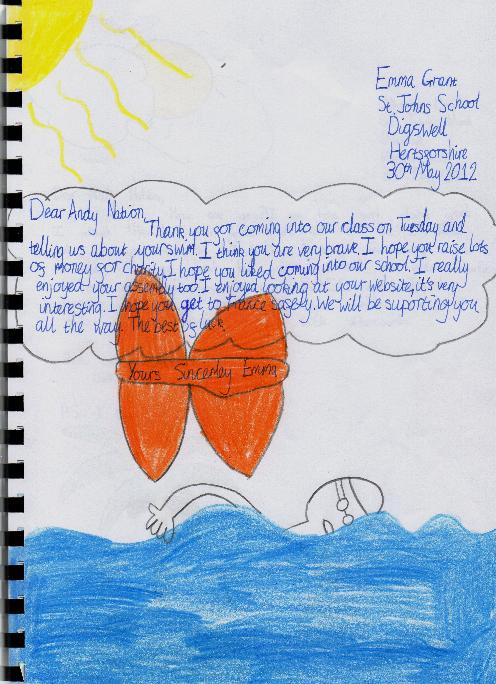 Emma Grant
St. Johns School
Digswell
Hertsgorshire
30th May 2012
Dear Andy Nation,
Thank you gor coming into our class on Tuesday and
telling us about your swim. I think you are very brave. I hope you raise lots
og money gor charity. I hope you liked coming into our school. I really
enjoyed your assembly too. I enjoyed looking at your website, it's very
interesting. I hope you get to France sagely. We will be supporting you
all the way. The best og luck
Yours Sincerley Emma